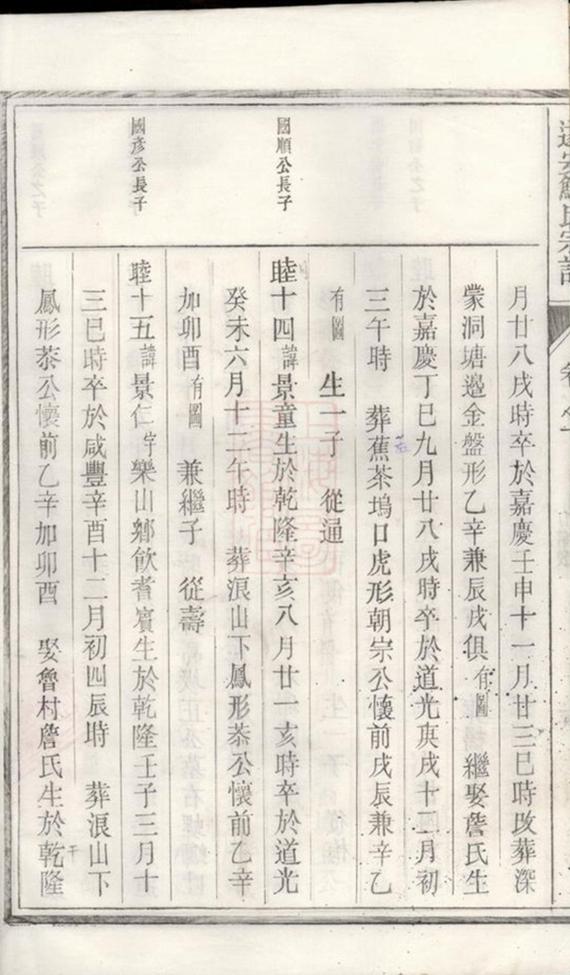 月廿八戌時卒於嘉慶壬申十一月廿三巳時改葬深
蒙洞塘邉金盤形乙辛兼辰戌俱有圖 繼娶詹氏生
於嘉慶丁巳九月廿八戌時卒於道光庚戌十二月初
三午時 葬蕉茶塢口虎形朝宗公懷前戌辰兼辛乙
有圖 生一子 從通
國順公長子
睦十四諱景童生於乾隆辛亥八月廿一亥時卒於道光
癸未六月十二午時 葬浪山下鳳形恭公懷前乙辛
加卯酉有圖 兼繼子 從壽
國彥公長子
睦十五諱景仁字樂山鄉飲耆賓生於乾隆壬子三月十
三巳時卒於咸豐辛酉十二月初四辰時 葬浪山下
鳳形恭公懷前乙辛加卯酉 娶魯村詹氏生於乾隆